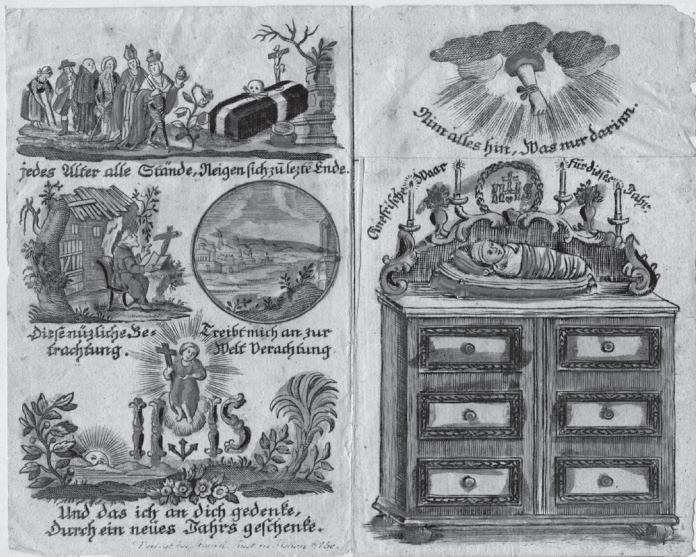 jedes Alter alle Stände, Neigen sich zu lezte Ende.
Diese nüzliche Be-
trachtung.
Treibt mich an zur
Welt Verachtung
IHS
Und das ich an dich gedenke,
Durch ein neües Jahrs geschenke.
Nim alles hin, Was nur darinn.
IHS
Ein frische Waar für dieses Jahr.